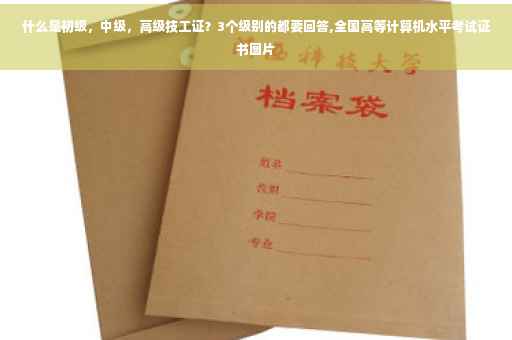 什么是初级，中级，高级技工证？3个级别的都要回答,全国高等计算机水平考试证
书图片
科技大学
档案袋
姓名
学院
专业